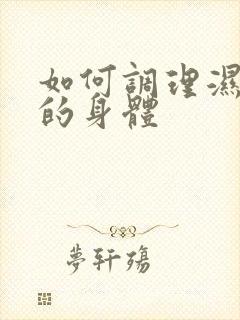 如何調理濕
的身體
夢軒殤